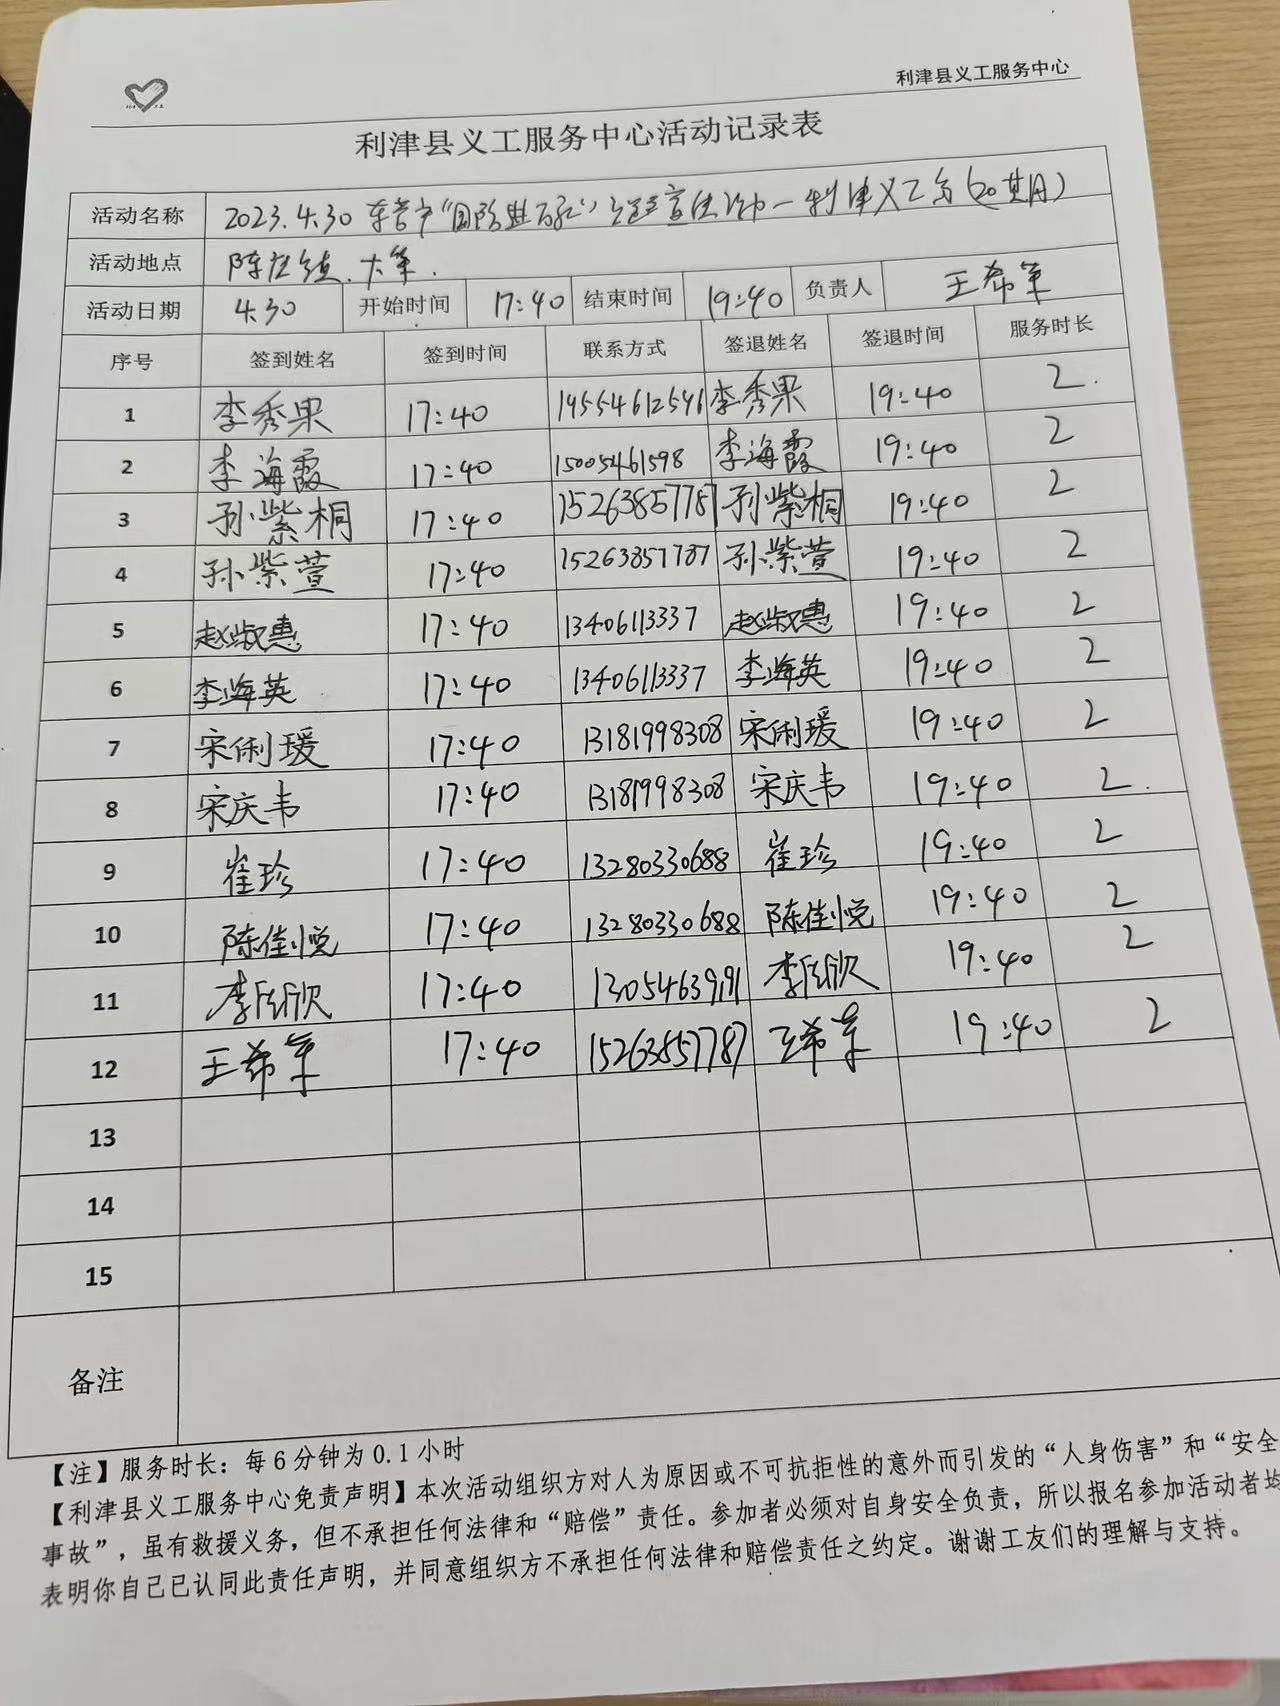 利津县义工服务中心
利津县义工服务中心活动记录表
活动名称 2023.4.30 东营市“国防进万家” 宣传活动-利津义工专(20其月)
活动地点 陈庄镇.大军.
活动日期 4.30 开始时间 17:40 结束时间 19:40 负责人 王希军
序号 签到姓名 签到时间 联系方式 签退姓名 签退时间 服务时长
1 李秀果 17:40 李秀果 19:40 2
2 李海霞 17:40 15005461598 李海霞 19:40 2
3 孙紫桐 17:40 15263857787 孙紫桐 19:40 2
4 孙紫萱 17:40 15263857787 孙紫萱 19:40 2
5 赵淑惠 17:40 13406113337 赵淑惠 19:40 2
6 李海英 17:40 13406113337 李海英 19:40 2
7 宋俐瑗 17:40 13181998308 宋俐瑗 19:40 2
8 宋庆韦 17:40 13181998308 宋庆韦 19:40 2
9 崔珍 17:40 13280330688 崔珍 19:40 2
10 陈佳悦 17:40 13280330688 陈佳悦 19:40 2
11 17:40 13054639191 19:40 2
12 王希军 17:40 15263857787 王希军 19:40 2
13
14
15
备注
【注】服务时长：每6分钟为0.1小时
【利津县义工服务中心免责声明】本次活动组织方对人为原因或不可抗拒性的意外而引发的“人身伤害”和“安全
事故”，虽有救援义务，但不承担任何法律和“赔偿”责任。参加者必须对自身安全负责，所以报名参加活动者均
表明你自己已认同此责任声明，并同意组织方不承担任何法律和赔偿责任之约定。谢谢工友们的理解与支持。